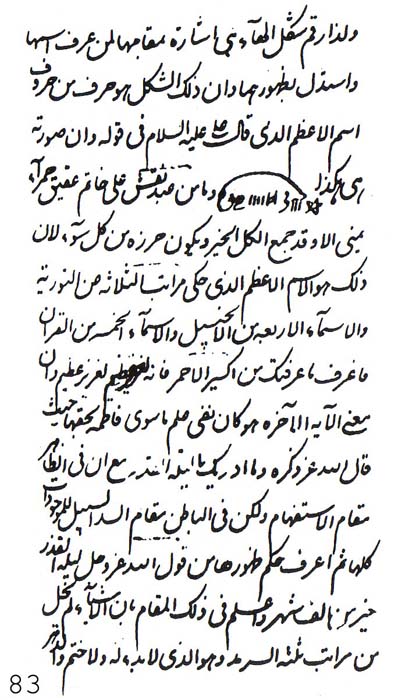 ولذا رقم شكل الهآء هي اشارة بمقامها لمن عرف اسمها
واستدل بظهورها وان ذلك الشكل هو حرف من حروف
اسم الاعظم الذى قال على عليه السلام فى قوله وان صورته
هى هكذا وما من عبد نقش على خاتم عقيق حمرآء
يمنى الا وقد جمع الكل الخير ويكون حرزه من كل سوء لان
ذلك هو الاسم الاعظم الذى حكى مراتب الثلاثه من التورية
والاسمآء الاربعه من الانجيل والاسمآء الخمسه من القران
فاعرف ما عرفتك من اكسير الاحمر فانه لعزيز عظيم وان
معنى الآيه الاخره هو كان نفى علم ما سوى فاطمه بحقها حيث
قال الله عز ذكره وما ادريك ما ليلة القدر مع ان فى الظاهر
مقام الاستفهام ولكن فى الباطن مقام السد السبيل للموجودات
كلها ثم اعرف حكم ظهورها من قول الله عز وجل ليلة القدر
خير من الف شهر واعلم فى ذلك المقام بان الاشيآء لم تخل
من مراتب ثلثه السرمد وهو الذى لا بدء له ولا ختم والدهر
83